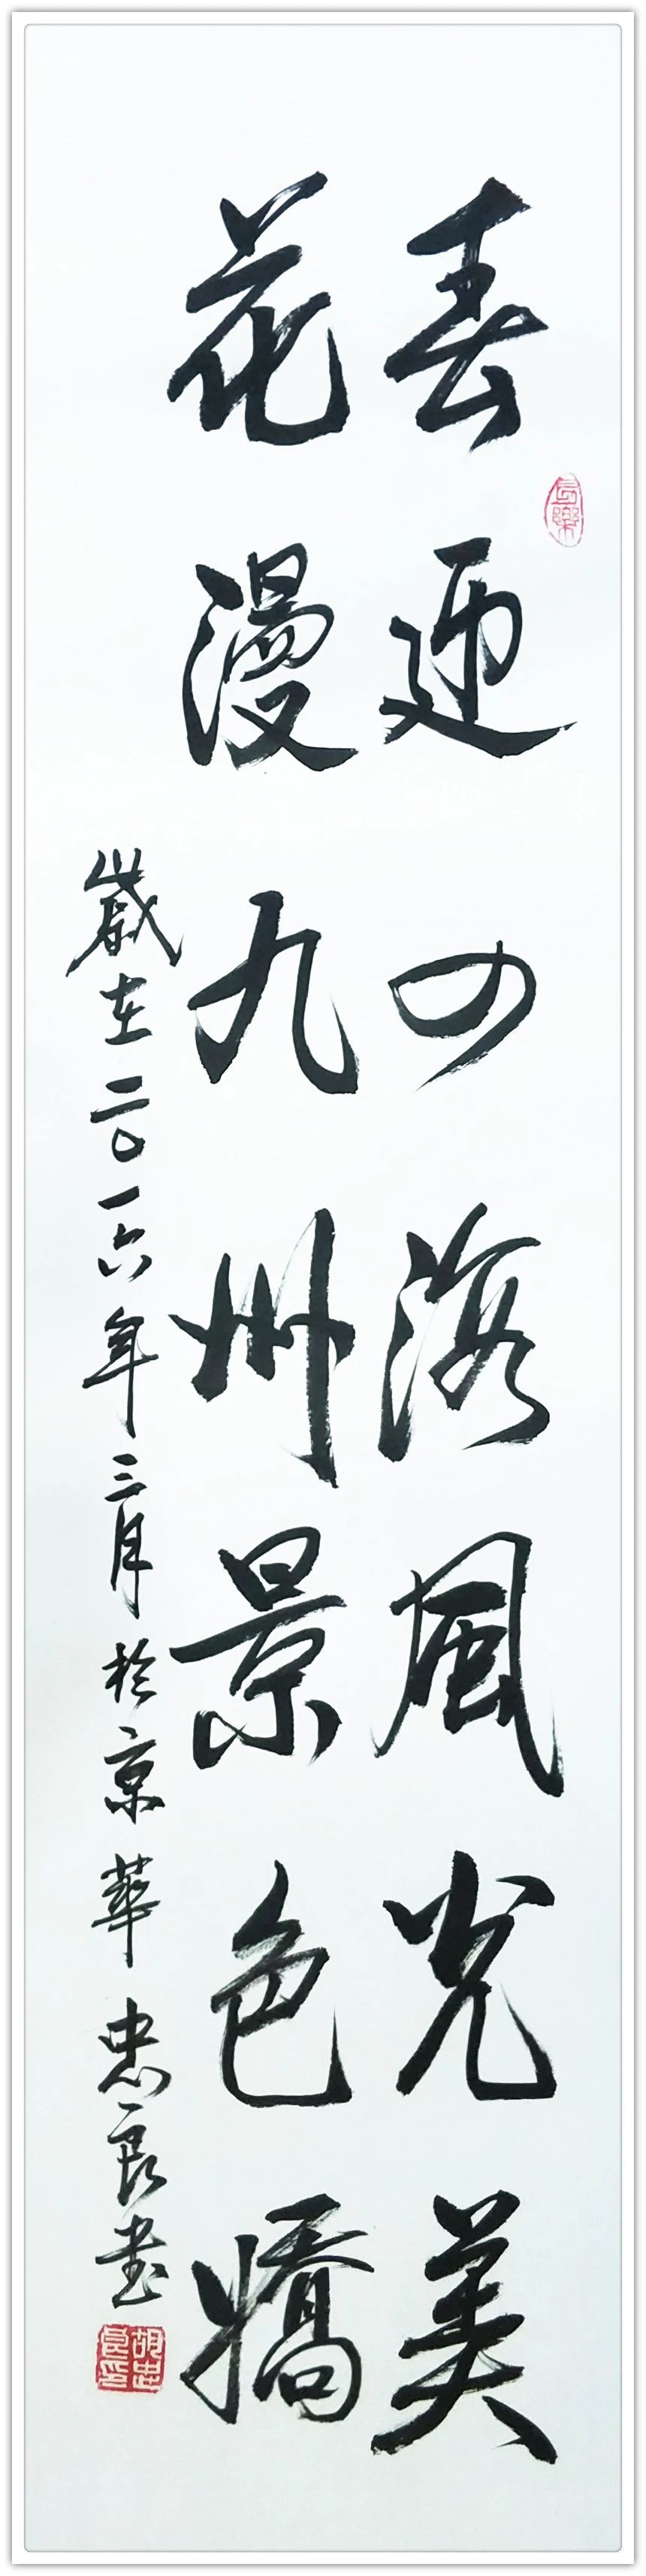 春迎四海風光美
花漫九州景色嬌
歲在二〇一六年三月於京華忠良書
長樂
胡忠良印